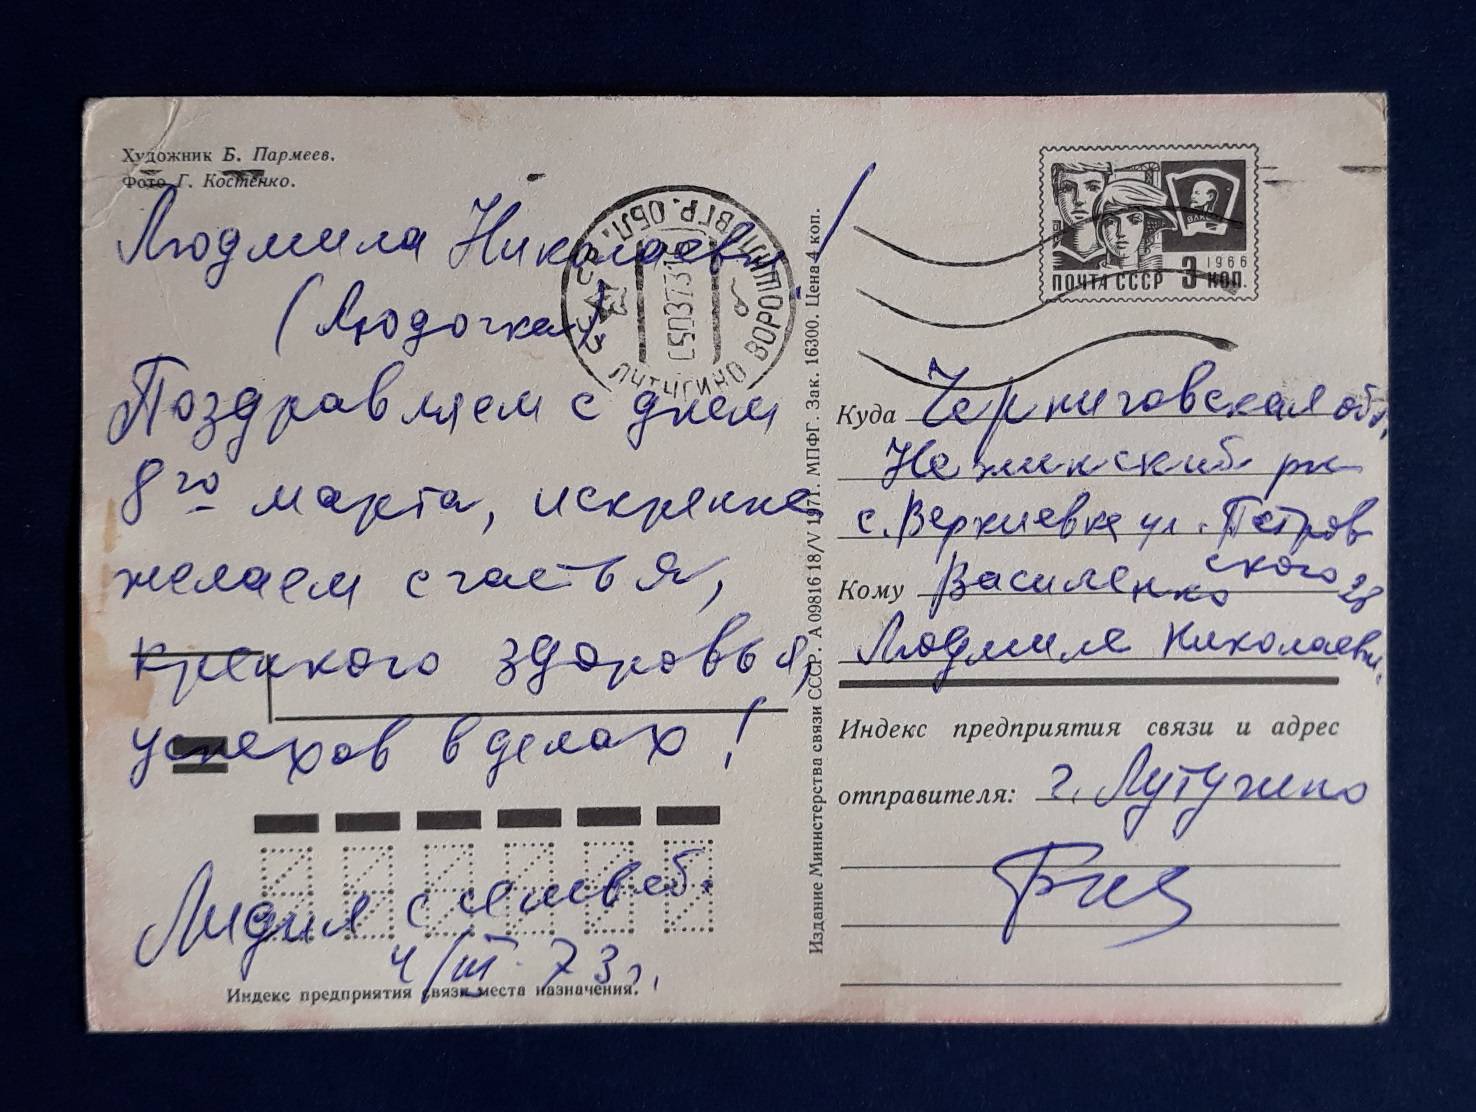 Художник Б. Пармеев.
Фото Г. Костенко.
Людмила Николаевна!
(Людочка)
Поздравляем с днем
8го марта, искренне
желаем счастья,
крепкого здоровья,
успехов в делах!
Лидия с семьей.
4/III. 73 г.
Индекс предприятия связи места назначения.
ЛУТУГИНО ВОРОШИЛОВГР. ОБЛ.
Издание Министерства связи СССР. А 09816 18/V 1971. МПФГ. Зак. 16300. Цена 4 коп.
ВЛКСМ
1966
ПОЧТА СССР 3 КОП.
Куда Черниговская обл,
Нежинский рн
с. Вертиевка ул. Петров
ского 28
Кому Василенко
Людмиле Николаевн.
Индекс предприятия связи и адрес
отправителя: г. Лутугино